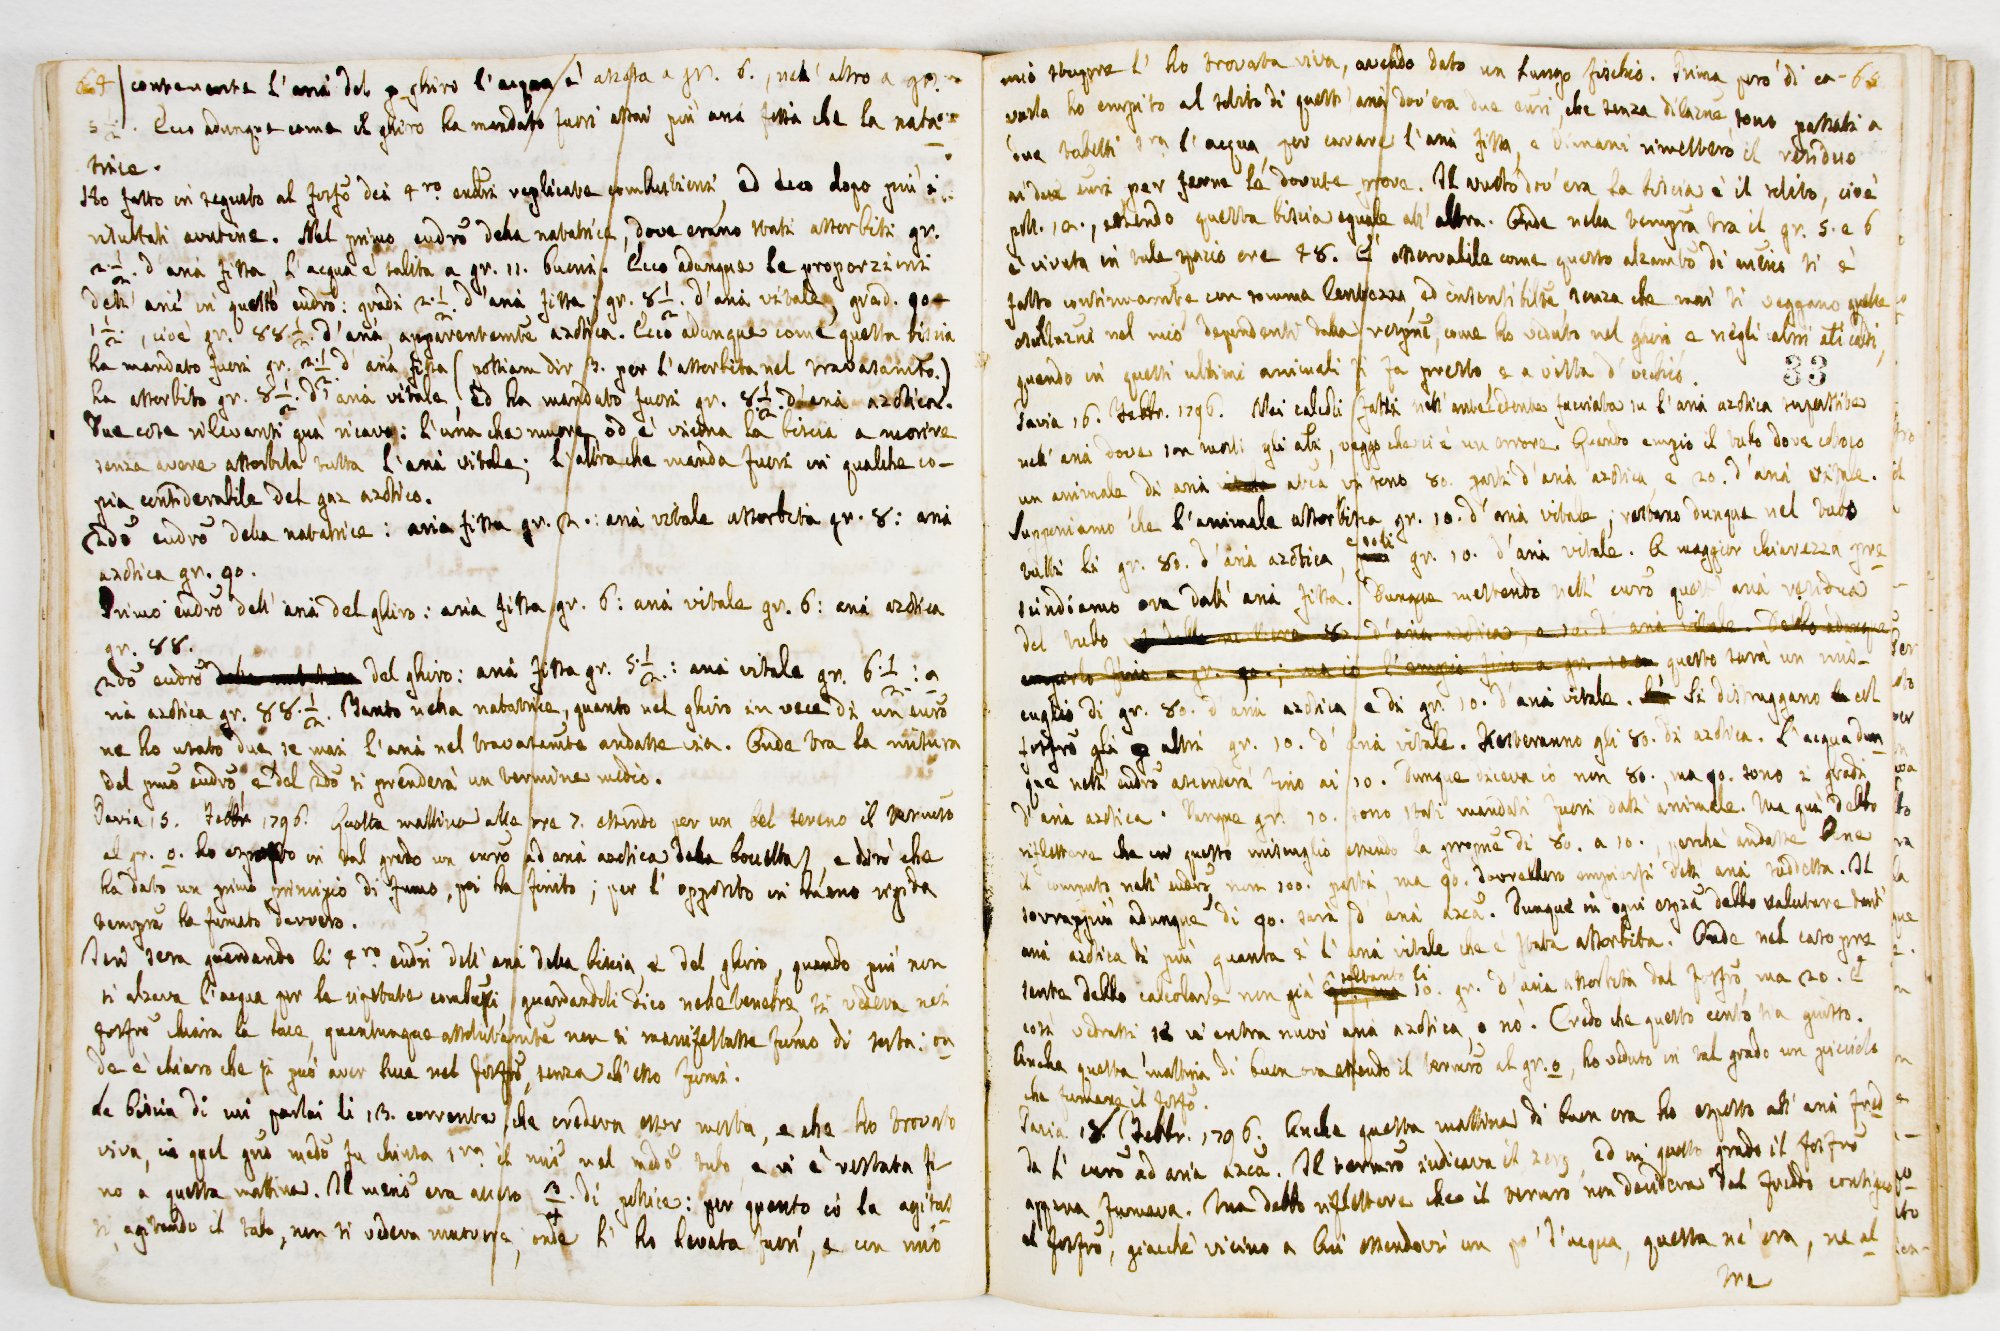 64
contenente l'aria del ghiro l'acqua è ascesa a gr. 6., nell'altro a gr.
5 1/2. Ecco adunque come il ghiro ha mandato fuori assai più aria fissa che la nata-
trice.
Ho fatto in seguito al fosfo dei 4ro eudri replicate combustioni, ed ecco dopo più i
risultati avutine. Nel primo eudro della natatrice, dove erano stati assorbiti gr.
2 1/2. d'aria fissa, l'acqua è salita a gr. 11. buoni. Ecco adunque le proporzioni
dell'aria in questo eudro: gradi 2 1/2. d'aria fissa: gr. 8 1/2. d'aria vitale, grad. 90-
1 1/2., cioè gr. 88 1/2. d'aria apparentemte azotica. Ecco adunque come questa biscia
ha mandato fuori gr. 2 1/2 d'aria fissa (possiam dir 3. per l'assorbita nel travasamto.)
ha assorbito gr. 8 1/2. d'aria vitale, ed ha mandato fuori gr. 8 1/2. d'aria azotica.
Due cose rilevanti quà ricavo: l'una che muore, od è vicina la biscia a morire
senza avere assorbita tutta l'aria vitale; l'altra che manda fuori in qualche co-
pia considerabile del gaz azotico.
2do eudro della natatrice: aria fissa gr. 2.: aria vitale assorbita gr. 8: aria
azotica gr. 90.
Primo eudro dell'aria del ghiro: aria fissa gr. 6: aria vitale gr. 6: aria azotica
gr. 88.
2do eudro della natatrice del ghiro: aria fissa gr. 5 1/2.: aria vitale gr. 6 1/2: a
ria azotica gr. 88 1/2. Tanto nella natatrice, quanto nel ghiro in vece di un euro
ne ho usato due, se mai l'aria nel travasamto andasse via. Onde tra la misura
del pmo eudro, e del 2do si prenderà un termine medio.
Pavia 15. Febbr 1796. Questa mattina alle ore 7. essendo per un bel sereno il termto
al gr. 0. ho esposto in tal grado un euro ad aria azotica della boccetta, e dirò che
ha dato un primo principio di fumo, poi ha finito; per l'opposito in meno rigida
tempra ha fumato davvero.
Ieri sera guardando li 4ro eudri dell'aria della biscia, e del ghiro, quando più non
si alzava l'acqua per le ripetute combusti, guardandoli dico nelle tenebre, si vedeva nei
fosfri chiara la luce, quantunque assolutamte non si manifestasse fumo di sorta: on
de è chiaro che si può aver luce nel fosfro, senza ch'esso fumi.
La biscia di cui parlai li 13. corrente, che credeva esser morta, e che ho trovato
viva, in quel gno medo fu chiusa tra il mio nel medo tubo, e vi è restata fi-
no a questa mattina. Il merio era asceso 3/4. di pollice: per quanto io la agitas
si, agitando il tubo, non si vedeva muovere, onde l'ho levata fuori, e con mio
65
mio stupore l'ho trovata viva, avendo dato un lungo fischio. Prima però di ca-
varla ho empito al solito di quest'aria dov'era due euri, che senza dilazne sono passati a
due tubetti tra l'acqua, per cavare l'aria fissa, e dimani rimetterò il residuo
ai due euri per farne le dovute prove. Il vuoto dov'era la biscia è il solito, cioè
poll. 12., essendo questa biscia eguale all'altra. Onde nella tempra tra il gr. 5. e 6
è vivuta in tale spazio ore 48. È osservabile come questo alzamto di merio si è
fatto continuamte con somma lentezza ed insensibilte senza che mai si veggano quelle
oscillazni nel mio dependenti dalla respne, come ho veduto nel ghiro e negli altri ali caldi,
quando in questi ultimi animali si fa presto e a vista d'occhio.
33
Pavia 16. Febbr. 1796. Nei calcoli fatti nell'antecedente facciata su l'aria azotica superstite
nell'aria dove son morti gli ali, veggo che ci è un errore. Quando empio il tubo dove colloco
un animale di aria atmca vi sono 80. parti d'aria azotica, e 20. d'aria vitale.
Supponiamo che l'animale assorbisca gr. 10. d'aria vitale; restano dunque nel tubo
tutti li gr. 80. d'aria azotica, e soli gr. 10. d'aria vitale. A maggior chiarezza pre
scindiamo ora dall'aria fissa. Dunque mettendo nell'euro quest'aria residua
del tubo d'aria azotica, e 10. d'aria vitale. Debbo adunque
empirlo fino a gr. 90.; ma io l'empio fino a gr. 100. questo sarà un mis-
cuglio di gr. 80. d'aria azotica e di gr. 10. d'aria vitale. Si distruggano col
fosfro gli altri gr. 10. d'aria vitale. Resteranno gli 80. di azotica. L'acqua dun
que nell'eudro ascenderà sino ai 10. Dunque diceva io non 80., ma 90. sono i gradi
d'aria azotica. Dunque gr. 10. sono stati mandati fuori dall'animale. Ma quà debbo
riflettere che in questo miscuglio essendo la propne di 80. a 10., perchè andasse bene
il computo nell'eudro, non 100. parti ma 90. dovrebbero empiersi dell'aria suddetta. Il
sovrappiù adunque di 90. sarà d'aria azca. Dunque in ogni espza debbo valutare tant'
aria azotica di più quanta è l'aria vitale che è stata assorbita. Onde nel caso pre
sente debbo calcolare non già soltanto li 10. gr. d'aria assorbita dal fosfro, ma 20. E
così vedrassi se v'entra nuov'aria azotica, o nò. Credo che questo conto sia giusto.
Anche questa mattina di buon ora essendo il termro al gr. 0, ho veduto in tal grado un piccolo
che fumare il fosfo.
Pavia 18. Febbr. 1796. Anche questa mattina di buon ora ho esposto all'aria fred
da l'euro ad aria azca. Il termro indicava il zero, ed in questo grado il fosfro
appena fumava. Ma debbo riflettere che il termro non decideva dal freddo contiguo
al fosfro, giacchè vicino a lui essendovi un po' d'acqua, questa nè era, nè al
tre